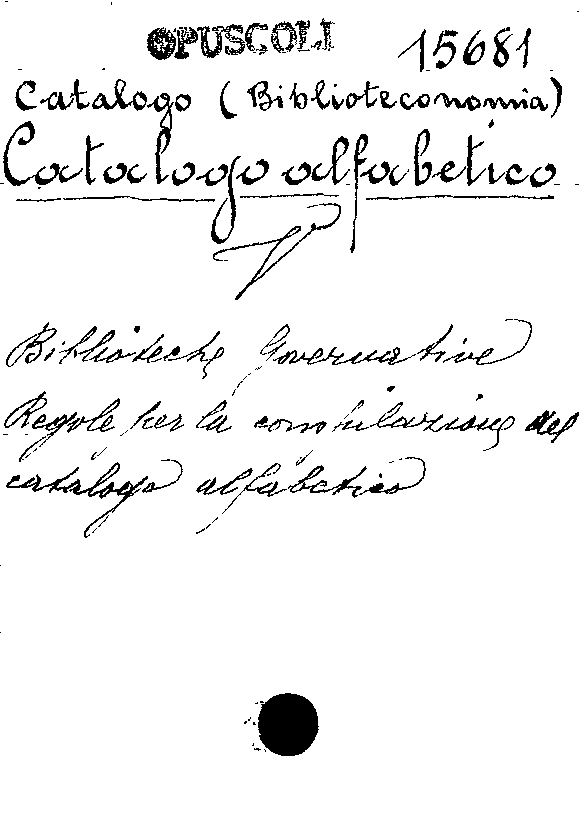 OPUSCOLI 15681
Catalogo (Biblioteconomia)
Catalogo alfabetico
V
Biblioteche Governative
Regole per la compilazione del
catalogo alfabetico